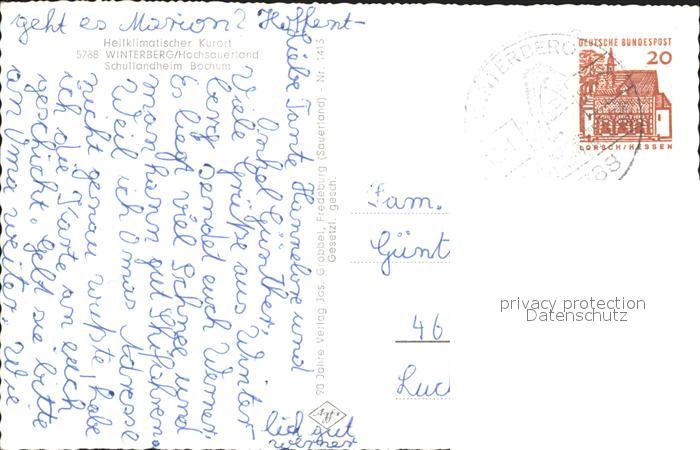 Heilklimatischer Kurort
5788 WINTERBERG/Hochsauerland
Schullandheim Bochum
Liebe Tante Hannelore und
Onkel Günther,
Viele Grüße aus Winter
berg sendet euch Werner.
Es liegt viel Schnee und
man kann gut Skifahren.
Weil ich Omas Adresse
nicht genau wußte, habe
ich die Karte an euch
geschickt. Gebt sie bitte
an Oma weiter. Wie
geht es Marion? Hoffent-
lich gut
Werner
90 Jahre Verlag Jos. Grobbel, Fredeburg (Sauerland) - Nr. 1413
Gesetzl. gesch.
Agfa
WINTERBERG
68
DEUTSCHE BUNDESPOST
20
LORSCH/HESSEN
Fam.
Günt
46
Luc
privacy protection
Datenschutz